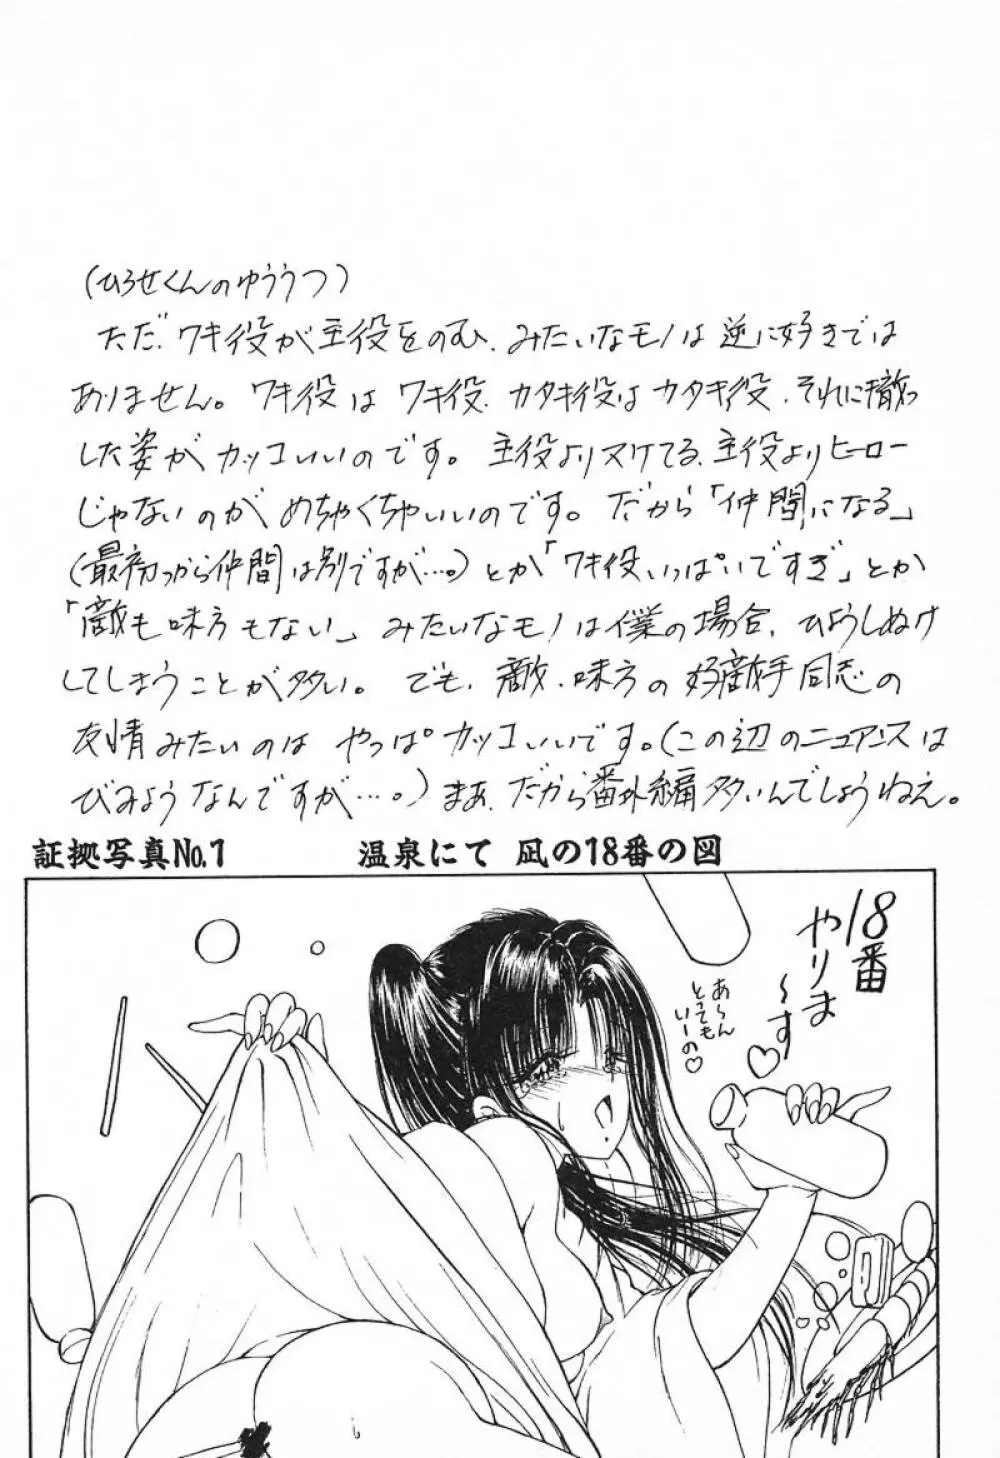 (ひろせくんのゆううつ)
ただ、ワキ役が主役をのむ、みたいなモノは逆に好きでは
ありません。ワキ役はワキ役、カタキ役はカタキ役、それに徹っ
した姿がカッコいいのです。主役よりヌケてる、主役よりヒーロー
じゃないのがめちゃくちゃいいのです。だから「仲間になる」
(最初っから仲間は別ですが…。)とか「ワキ役いっぱいですぎ」とか
「敵も味方もない」みたいなモノは僕の場合、ひょうしぬけ
してしまうことが多い。でも、敵、味方の好敵手同志の
友情みたいのはやっぱカッコいいです。(この辺のニュアンスは
びみょうなんですが…。)まぁ、だから番外編多いんでしょうねえ。
証拠写真No.1 温泉にて 凪の18番の図
18番
やりま
〜す♡
あ〜ん
とっても
い〜の♡